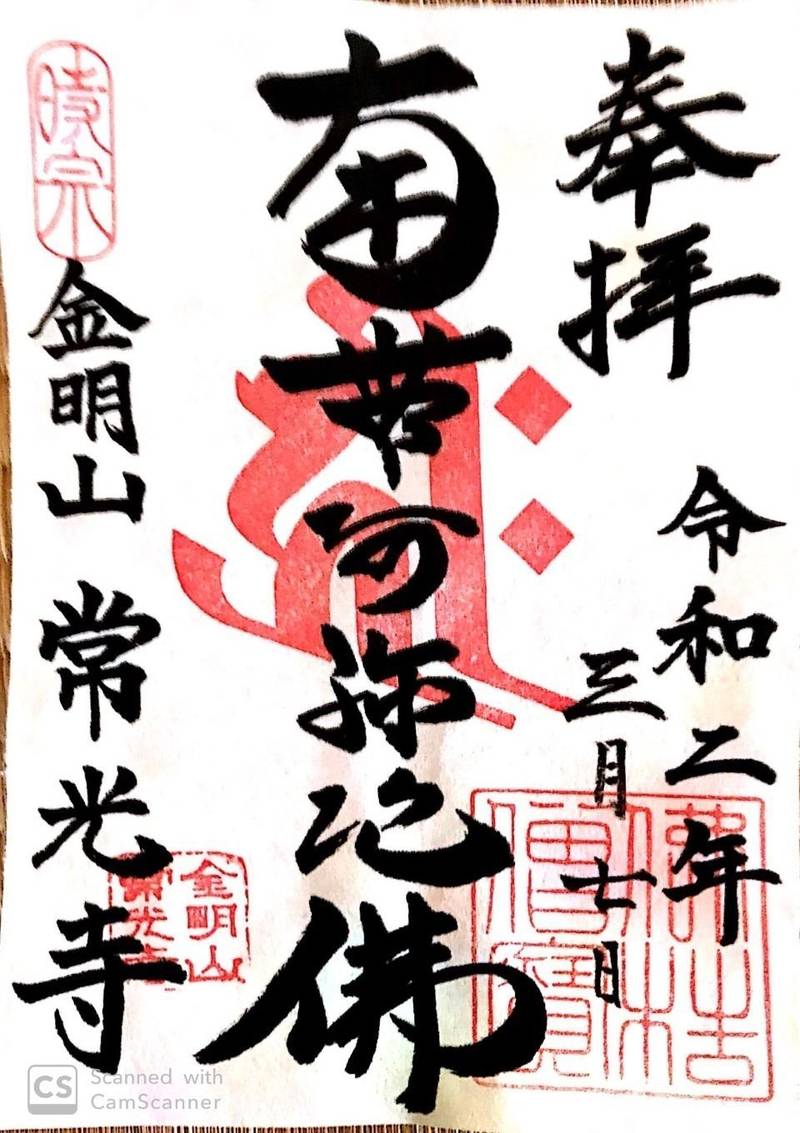 奉拝
令和二年
三月七日
南無阿弥陀佛
金明山 常光寺
金明山
常光寺
佛法僧寶
CS Scanned with
CamScanner